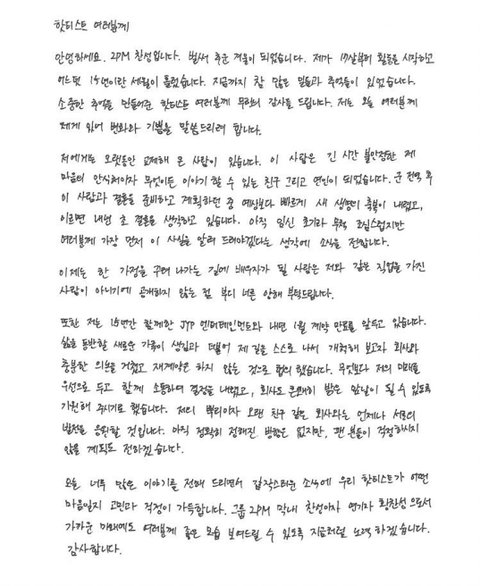 핫티스트 여러분께
안녕하세요. 2PM 찬성입니다. 벌써 추운 겨울이 되었습니다. 제가 17살부터 활동을 시작하고
어느덧 15년이란 세월이 흘렀습니다. 지금까지 참 많은 일들과 추억들이 있었습니다.
소중한 추억을 만들어준 핫티스트 여러분께 무한의 감사를 드립니다. 저는 오늘 여러분께
제게 있어 변화와 기쁨을 말씀드리려 합니다.
저에게는 오랫동안 교제해 온 사람이 있습니다. 이 사람은 긴 시간 불안정한 제
마음의 안식처이자 무엇이든 이야기할 수 있는 친구 그리고 연인이 되었습니다. 군 전역 후
이 사람과 결혼을 준비하고 계획하던 중 예상보다 빠르게 새 생명의 축복이 내렸고,
이르면 내년 초 결혼을 생각하고 있습니다. 아직 임신 초기라 무척 조심스럽지만
여러분께 가장 먼저 이 사실을 알려 드려야겠다는 생각에 소식을 전합니다.
이제는 한 가정을 꾸려 나가는 길에 배우자가 될 사람은 저와 같은 직업을 가진
사람이 아니기에 공개하지 않는 점 부디 너른 양해 부탁드립니다.
또한 저는 15년간 함께한 JYP 엔터테인먼트와 내년 1월 계약 만료를 앞두고 있습니다.
삶을 동반할 새로운 가족이 생김과 더불어 제 길을 스스로 나서 개척해 보고자 회사와
충분한 의논을 거쳤고 재계약은 하지 않는 것으로 합의했습니다. 무엇보다 저의 미래를
우선으로 두고 함께 소통하여 결정을 내렸고, 회사도 흔쾌히 밝은 앞날이 될 수 있도록
기원해 주시기로 했습니다. 저의 뿌리이자 오랜 친구 같은 회사와는 언제나 서로의
발전을 응원할 것입니다. 아직 정확히 정해진 방향은 없지만, 팬 분들이 걱정하시지
않을 계획도 전하겠습니다.
오늘 너무 많은 이야기를 전해 드리면서 갑작스러운 소식에 우리 핫티스트가 어떤
마음일지 고민과 걱정이 가득합니다. 그룹 2PM 막내 찬성이자 연기자 황찬성으로서
가까운 미래에도 여러분께 좋은 모습 보여드릴 수 있도록 지금처럼 노력하겠습니다.
감사합니다.